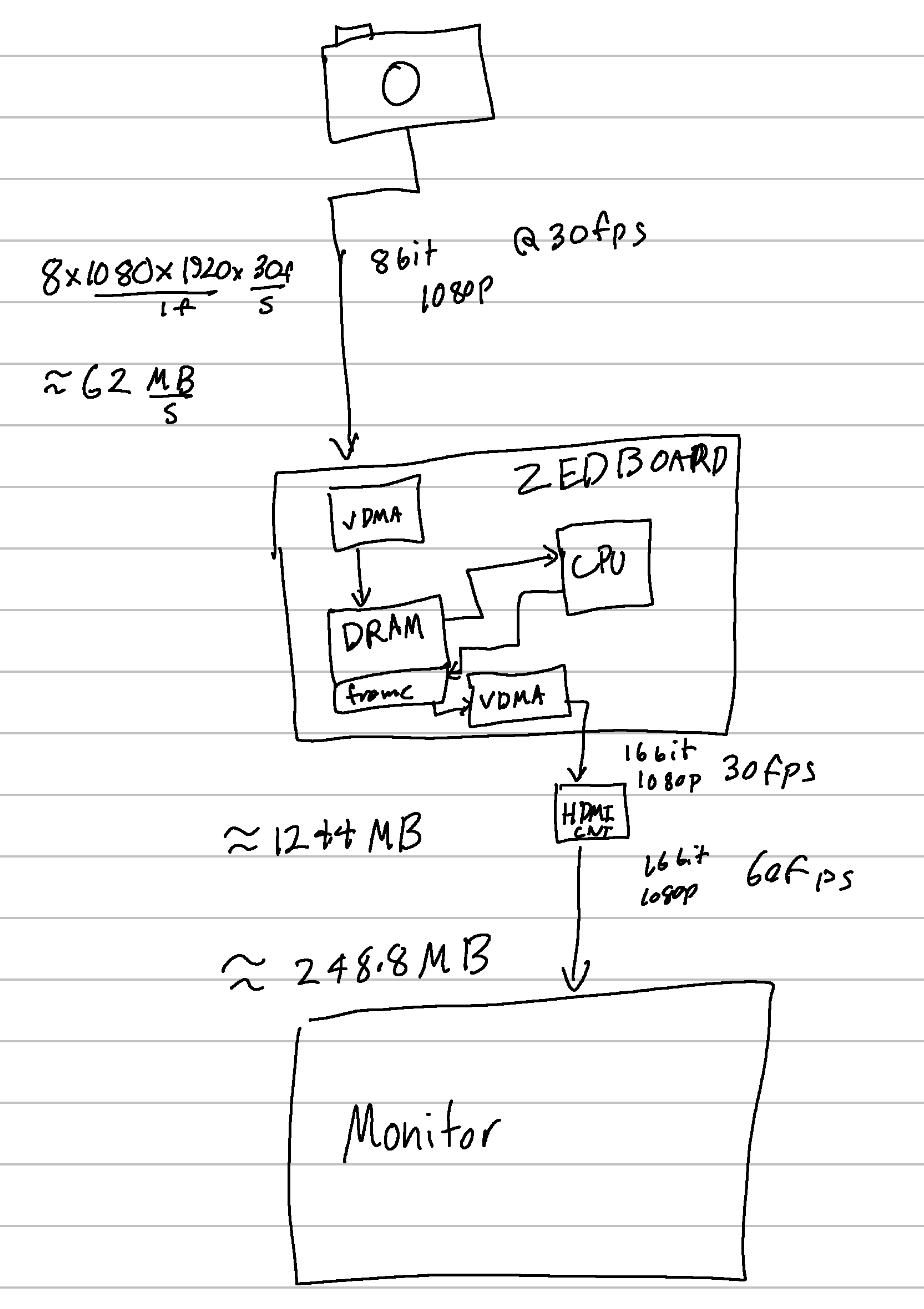 @ 30fps
8bit
1080p
8×1080×1920×30f
1f s
≈62 MB
s
ZEDBOARD
VDMA
CPU
DRAM
frame
VDMA
16bit
1080p 30fps
HDMI
CNT
≈1244 MB
16bit
1080p 60fps
≈ 248.8MB
Monitor